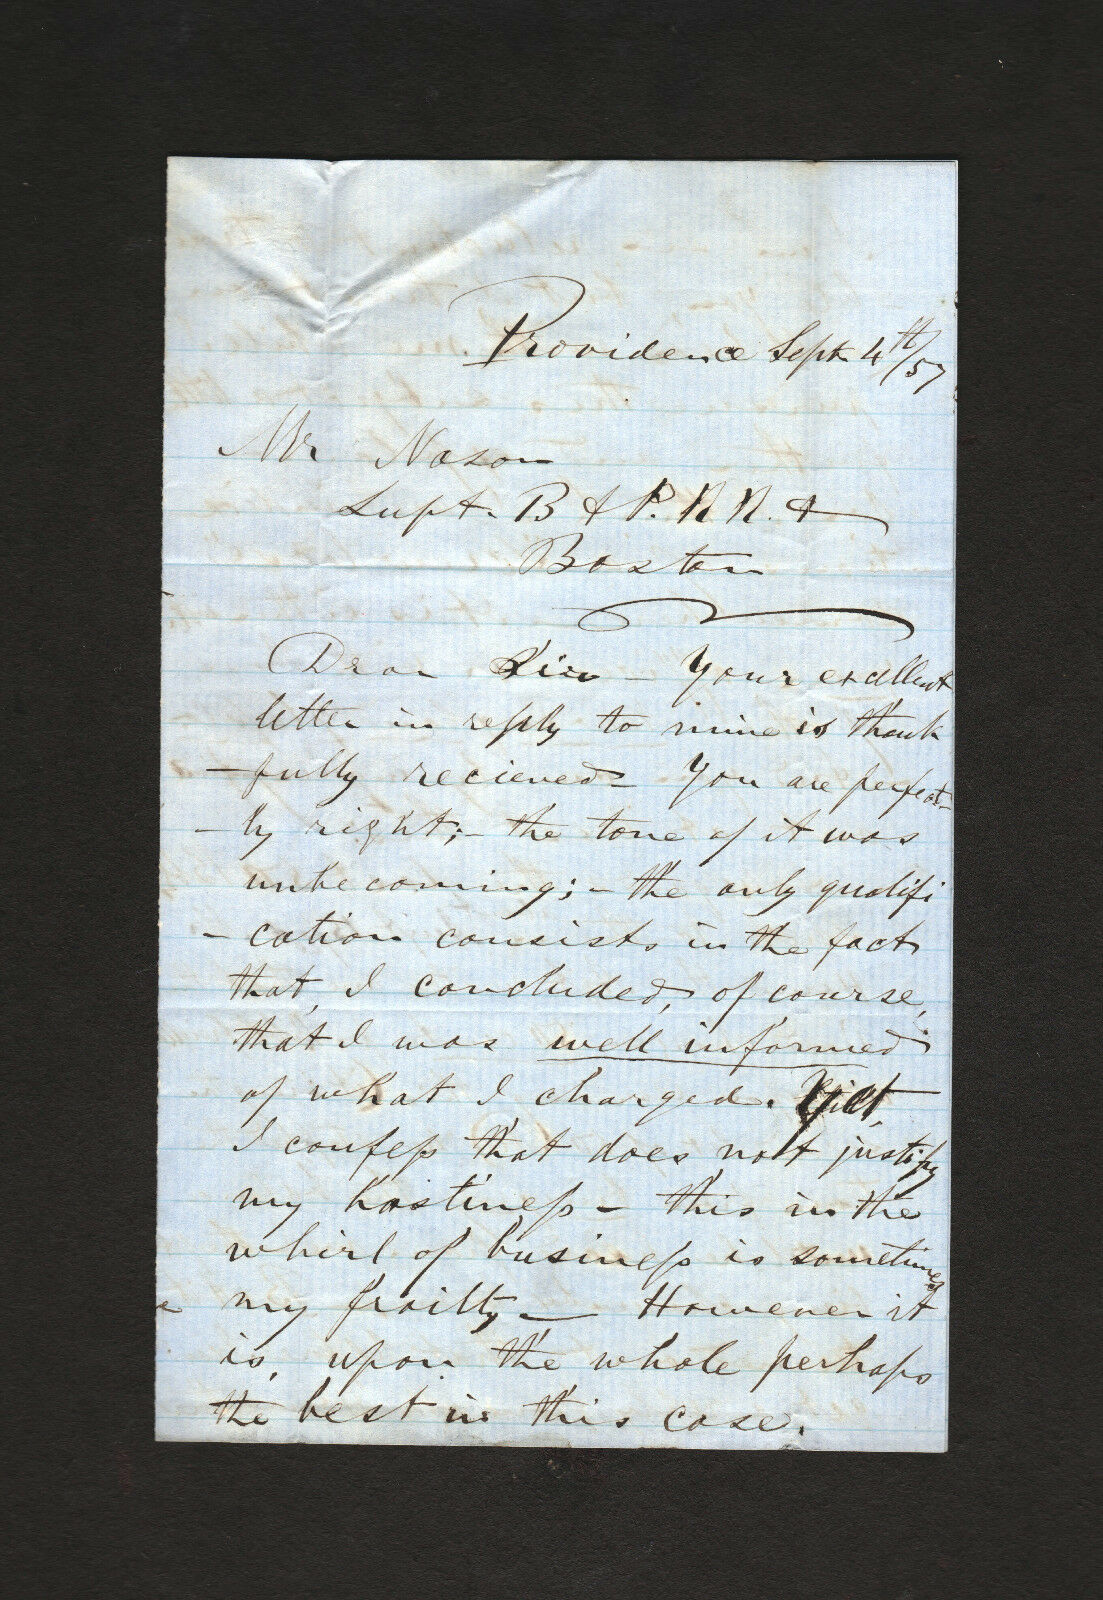 Providence Sept 4th/57
Mr Nason
Supt. B & P. R R. &
Boston
Dear Sir - Your excellent
letter in reply to mine is thank
-fully recieved - You are perfect-
-ly right; - the tone of it was
unbecoming; - the only qualifi
-cation consists in the fact
that, I concluded, of course,
that I was well informed
of what I charged. Yet
I confess that does not justify
my hastiness - this in the
whirl of business is sometimes
my frailty - However it
is, upon the whole perhaps
the best in this case.